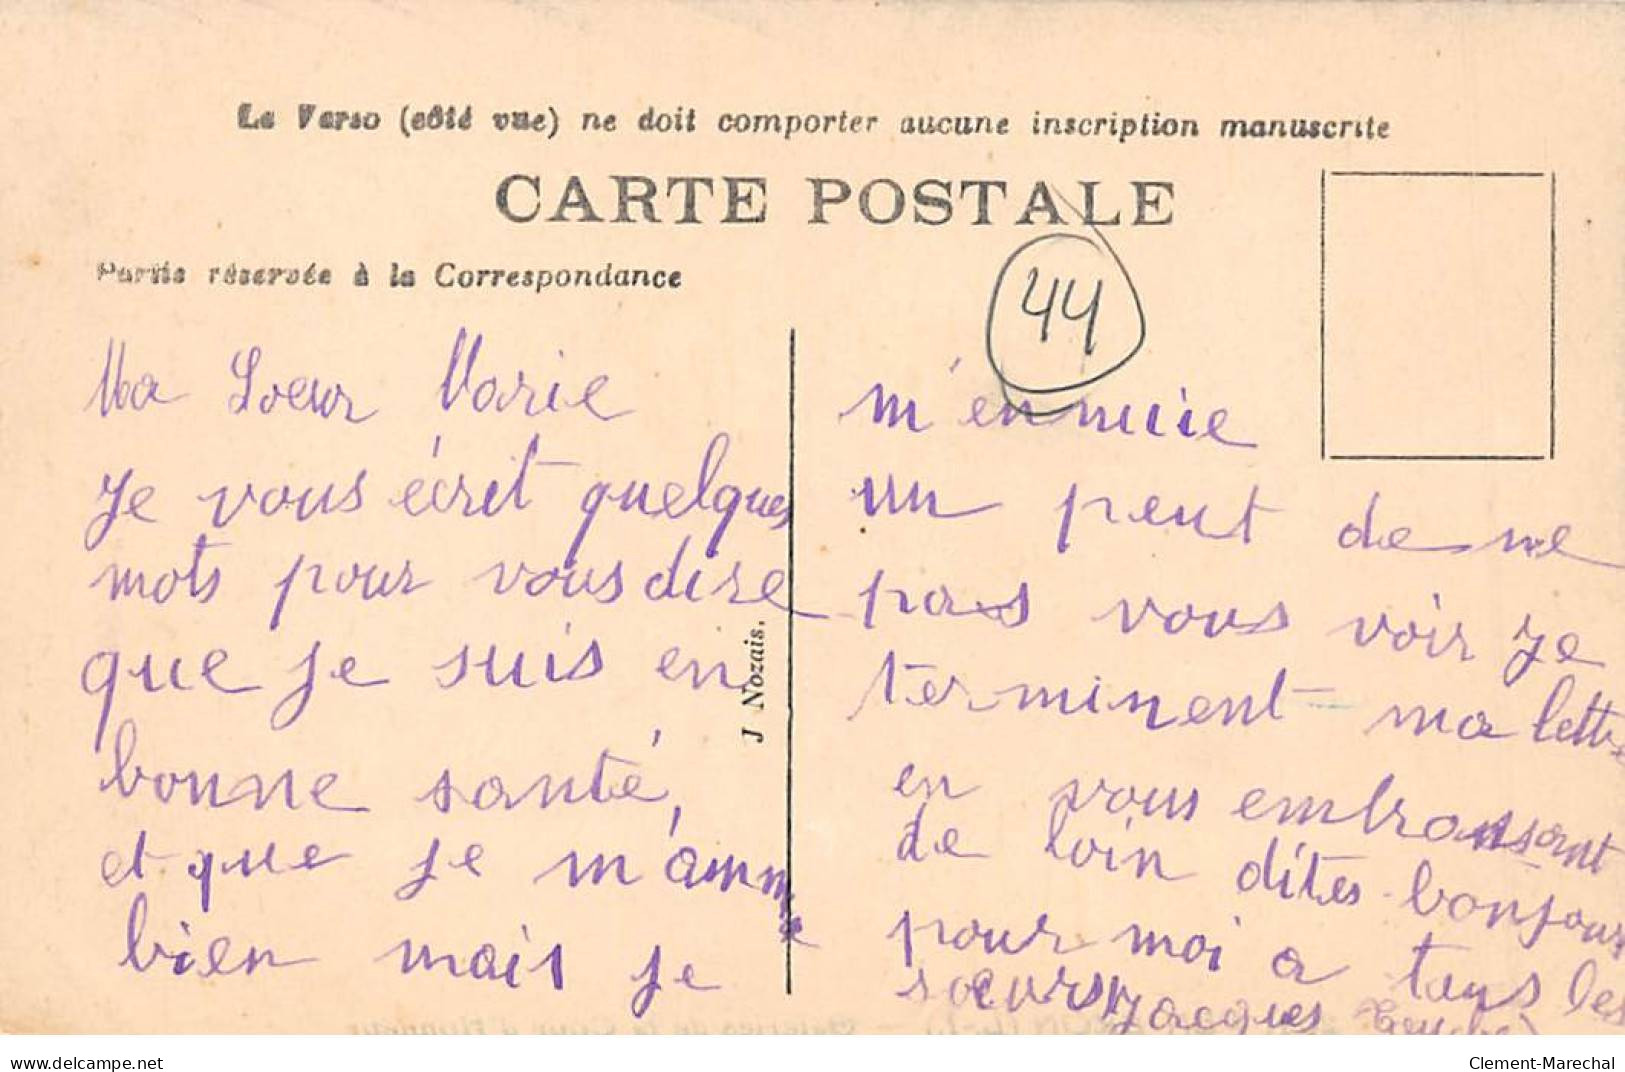 Le Verso (côté vue) ne doit comporter aucune inscription manuscrite
CARTE POSTALE
Partie réservée à la Correspondance
44
Ma Soeur Marie
Je vous écrit quelques
mots pour vous dire
que je suis en
bonne santé,
et que je m'amme
bien mais je
J Nozais.
m'ennuie
un peut de ne
pas vous voir je
terminent ma lettre
en vous embrassant
de loin dites bonjour
pour moi a tous les
soeurs Jacques
delcampe.net
Clement-Marechal